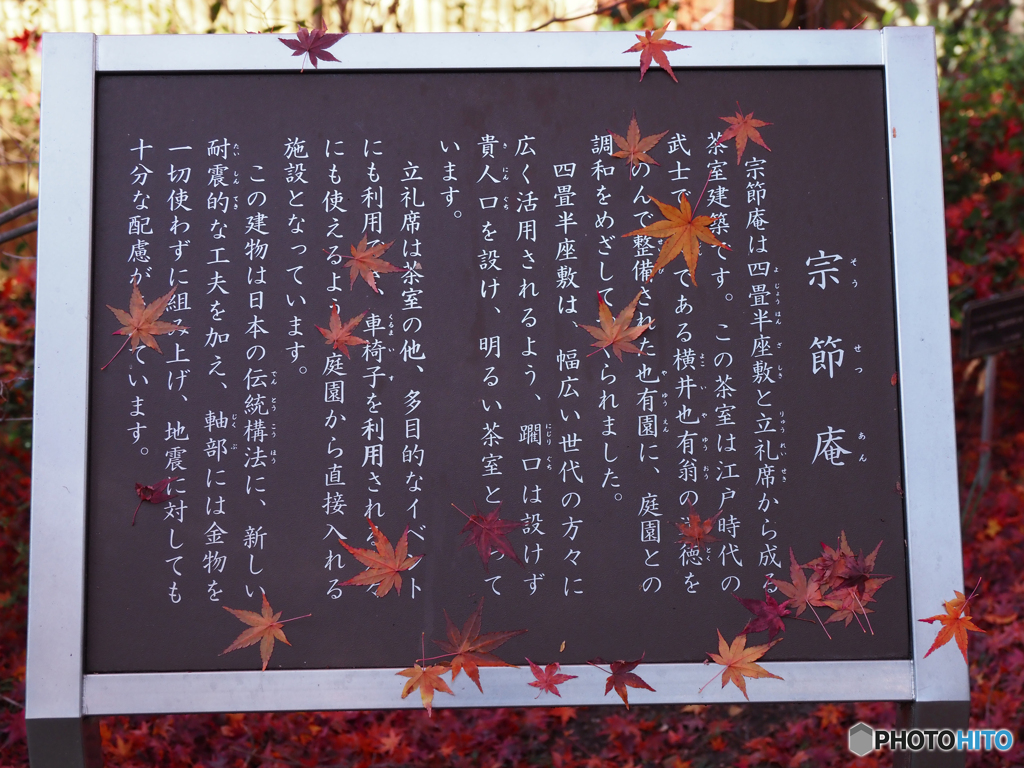 宗節庵
宗節庵は四畳半座敷と立礼席から成る
茶室建築です。この茶室は江戸時代の
武士で である横井也有翁の 徳を
のんで整備された也有園に、庭園との
調和をめざして くられました。
四畳半座敷は、幅広い世代の方々に
広く活用されるよう、躙口は設けず
貴人口を設け、明るい茶室と って
います。
立礼席は茶室の他、多目的なイベント
にも利用 、車椅子を利用され
にも使えるよう 庭園から直接入れる
施設となっています。
この建物は日本の伝統構法に、新しい
耐震的な工夫を加え、軸部には金物を
一切使わずに組み上げ、地震に対しても
十分な配慮が ています。
PHOTOHITO